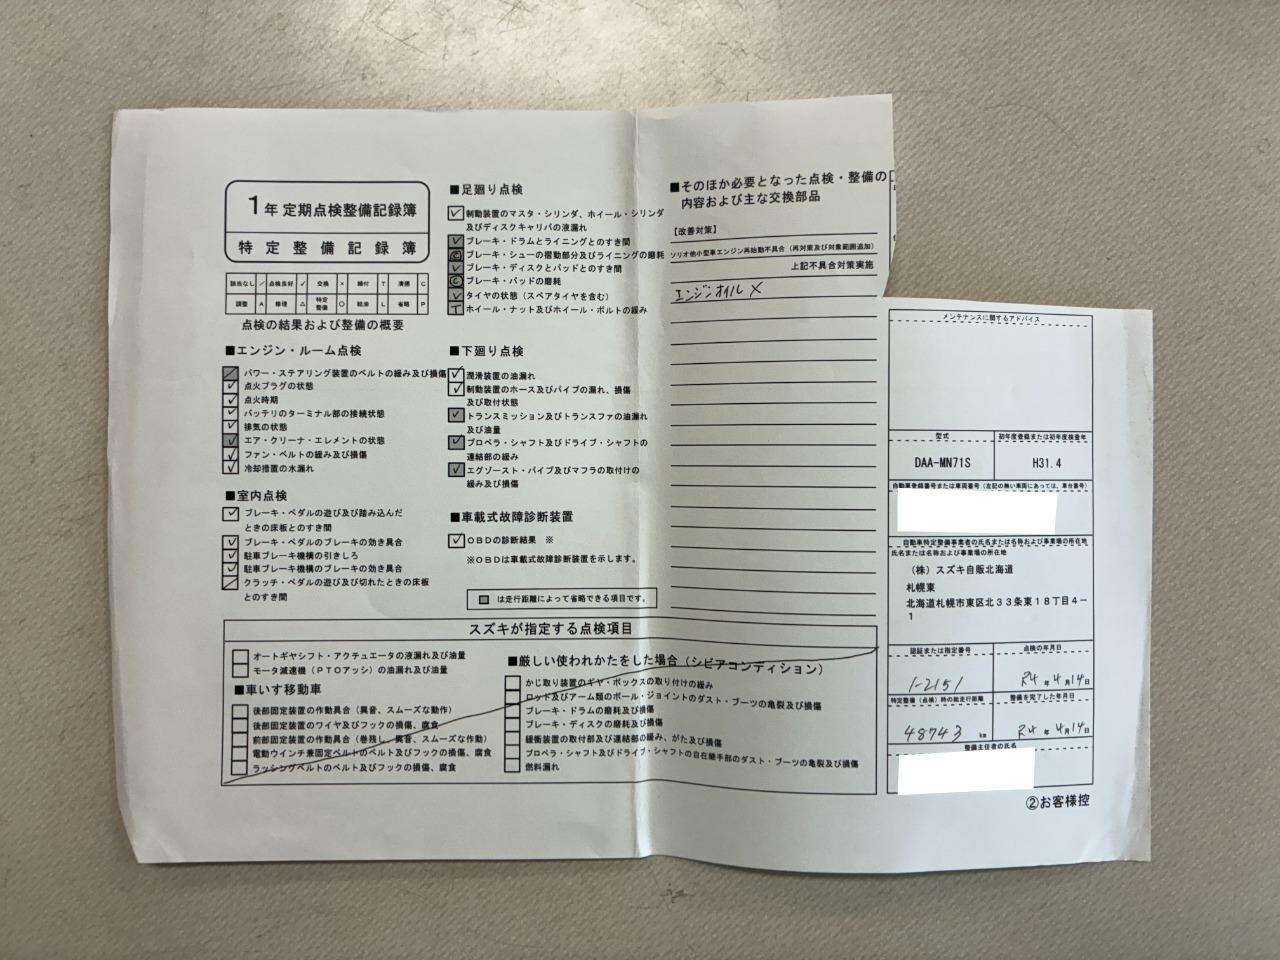 1年 定期点検整備記録簿
特定整備記録簿
該当なし ／ 点検良好 ✓ 交換 × 締付 T 清掃 C
調整 A 修理 △ 特定整備 ○ 給油 L 省略 P
点検の結果および整備の概要
■エンジン・ルーム点検
パワー・ステアリング装置のベルトの緩み及び損傷
点火プラグの状態
点火時期
バッテリのターミナル部の接続状態
排気の状態
エア・クリーナ・エレメントの状態
ファン・ベルトの緩み及び損傷
冷却措置の水漏れ
■室内点検
ブレーキ・ペダルの遊び及び踏み込んだ
ときの床板とのすき間
ブレーキ・ペダルのブレーキの効き具合
駐車ブレーキ機構の引きしろ
駐車ブレーキ機構のブレーキの効き具合
クラッチ・ペダルの遊び及び切れたときの床板
とのすき間
■足廻り点検
制動装置のマスタ・シリンダ、ホイール・シリンダ
及びディスクキャリパの液漏れ
ブレーキ・ドラムとライニングとのすき間
ブレーキ・シューの摺動部分及びライニングの磨耗
ブレーキ・ディスクとパッドとのすき間
ブレーキ・パッドの磨耗
タイヤの状態（スペアタイヤを含む）
ホイール・ナット及びホイール・ボルトの緩み
■下廻り点検
潤滑装置の油漏れ
制動装置のホース及びパイプの漏れ、損傷
及び取付状態
トランスミッション及びトランスファの油漏れ
及び油量
プロペラ・シャフト及びドライブ・シャフトの
連結部の緩み
エグゾースト・パイプ及びマフラの取付けの
緩み及び損傷
■車載式故障診断装置
OBDの診断結果 ※
※OBDは車載式故障診断装置を示します。
は走行距離によって省略できる項目です。
■そのほか必要となった点検・整備の
内容および主な交換部品
【改善対策】
ソリオ他小型車エンジン再始動不具合（再対策及び対象範囲追加）
上記不具合対策実施
エンジンオイル ×
スズキが指定する点検項目
オートギヤシフト・アクチュエータの液漏れ及び油量
モータ減速機（PTOアッシ）の油漏れ及び油量
■車いす移動車
後部固定装置の作動具合（異音、スムーズな動作）
後部固定装置のワイヤ及びフックの損傷、腐食
前部固定装置の作動具合（巻残し、異音、スムーズな作動）
電動ウインチ兼固定ベルトのベルト及びフックの損傷、腐食
ラッシングベルトのベルト及びフックの損傷、腐食
■厳しい使われかたをした場合（シビアコンディション）
かじ取り装置のギヤ・ボックスの取り付けの緩み
ロッド及びアーム類のボール・ジョイントのダスト・ブーツの亀裂及び損傷
ブレーキ・ドラムの磨耗及び損傷
ブレーキ・ディスクの磨耗及び損傷
緩衝装置の取付部及び連結部の緩み、がた及び損傷
プロペラ・シャフト及びドライブ・シャフトの自在継手部のダスト・ブーツの亀裂及び損傷
燃料漏れ
メンテナンスに関するアドバイス
型式
初年度登録または初年度検査年
DAA-MN71S
H31.4
自動車登録番号または車両番号（左記の無い車両にあっては、車台番号）
自動車特定整備事業者の氏名または名称および事業場の所在地
氏名または名称および事業場の所在地
（株）スズキ自販北海道
札幌東
北海道札幌市東区北33条東18丁目4－
1
認証または指定番号
点検の年月日
1-2151
R4 年 4月 14日
特定整備（点検）時の総走行距離
整備を完了した年月日
48743 km
R4 年 4月 14日
整備主任者の氏名
②お客様控